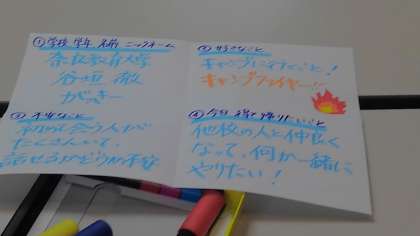 ①学校 学年 名前 ニックネーム
奈良教育大学
谷垣 徹
がっきー
②好きなこと
キャンプに行くこと!
キャンプファイヤー!!
③不安なこと
初めて会う人が
たくさんいて、
話せるかどうか不安
④今日 持ち帰りたいこと
他校の人と仲良く
なって、何か一緒に
やりたい!